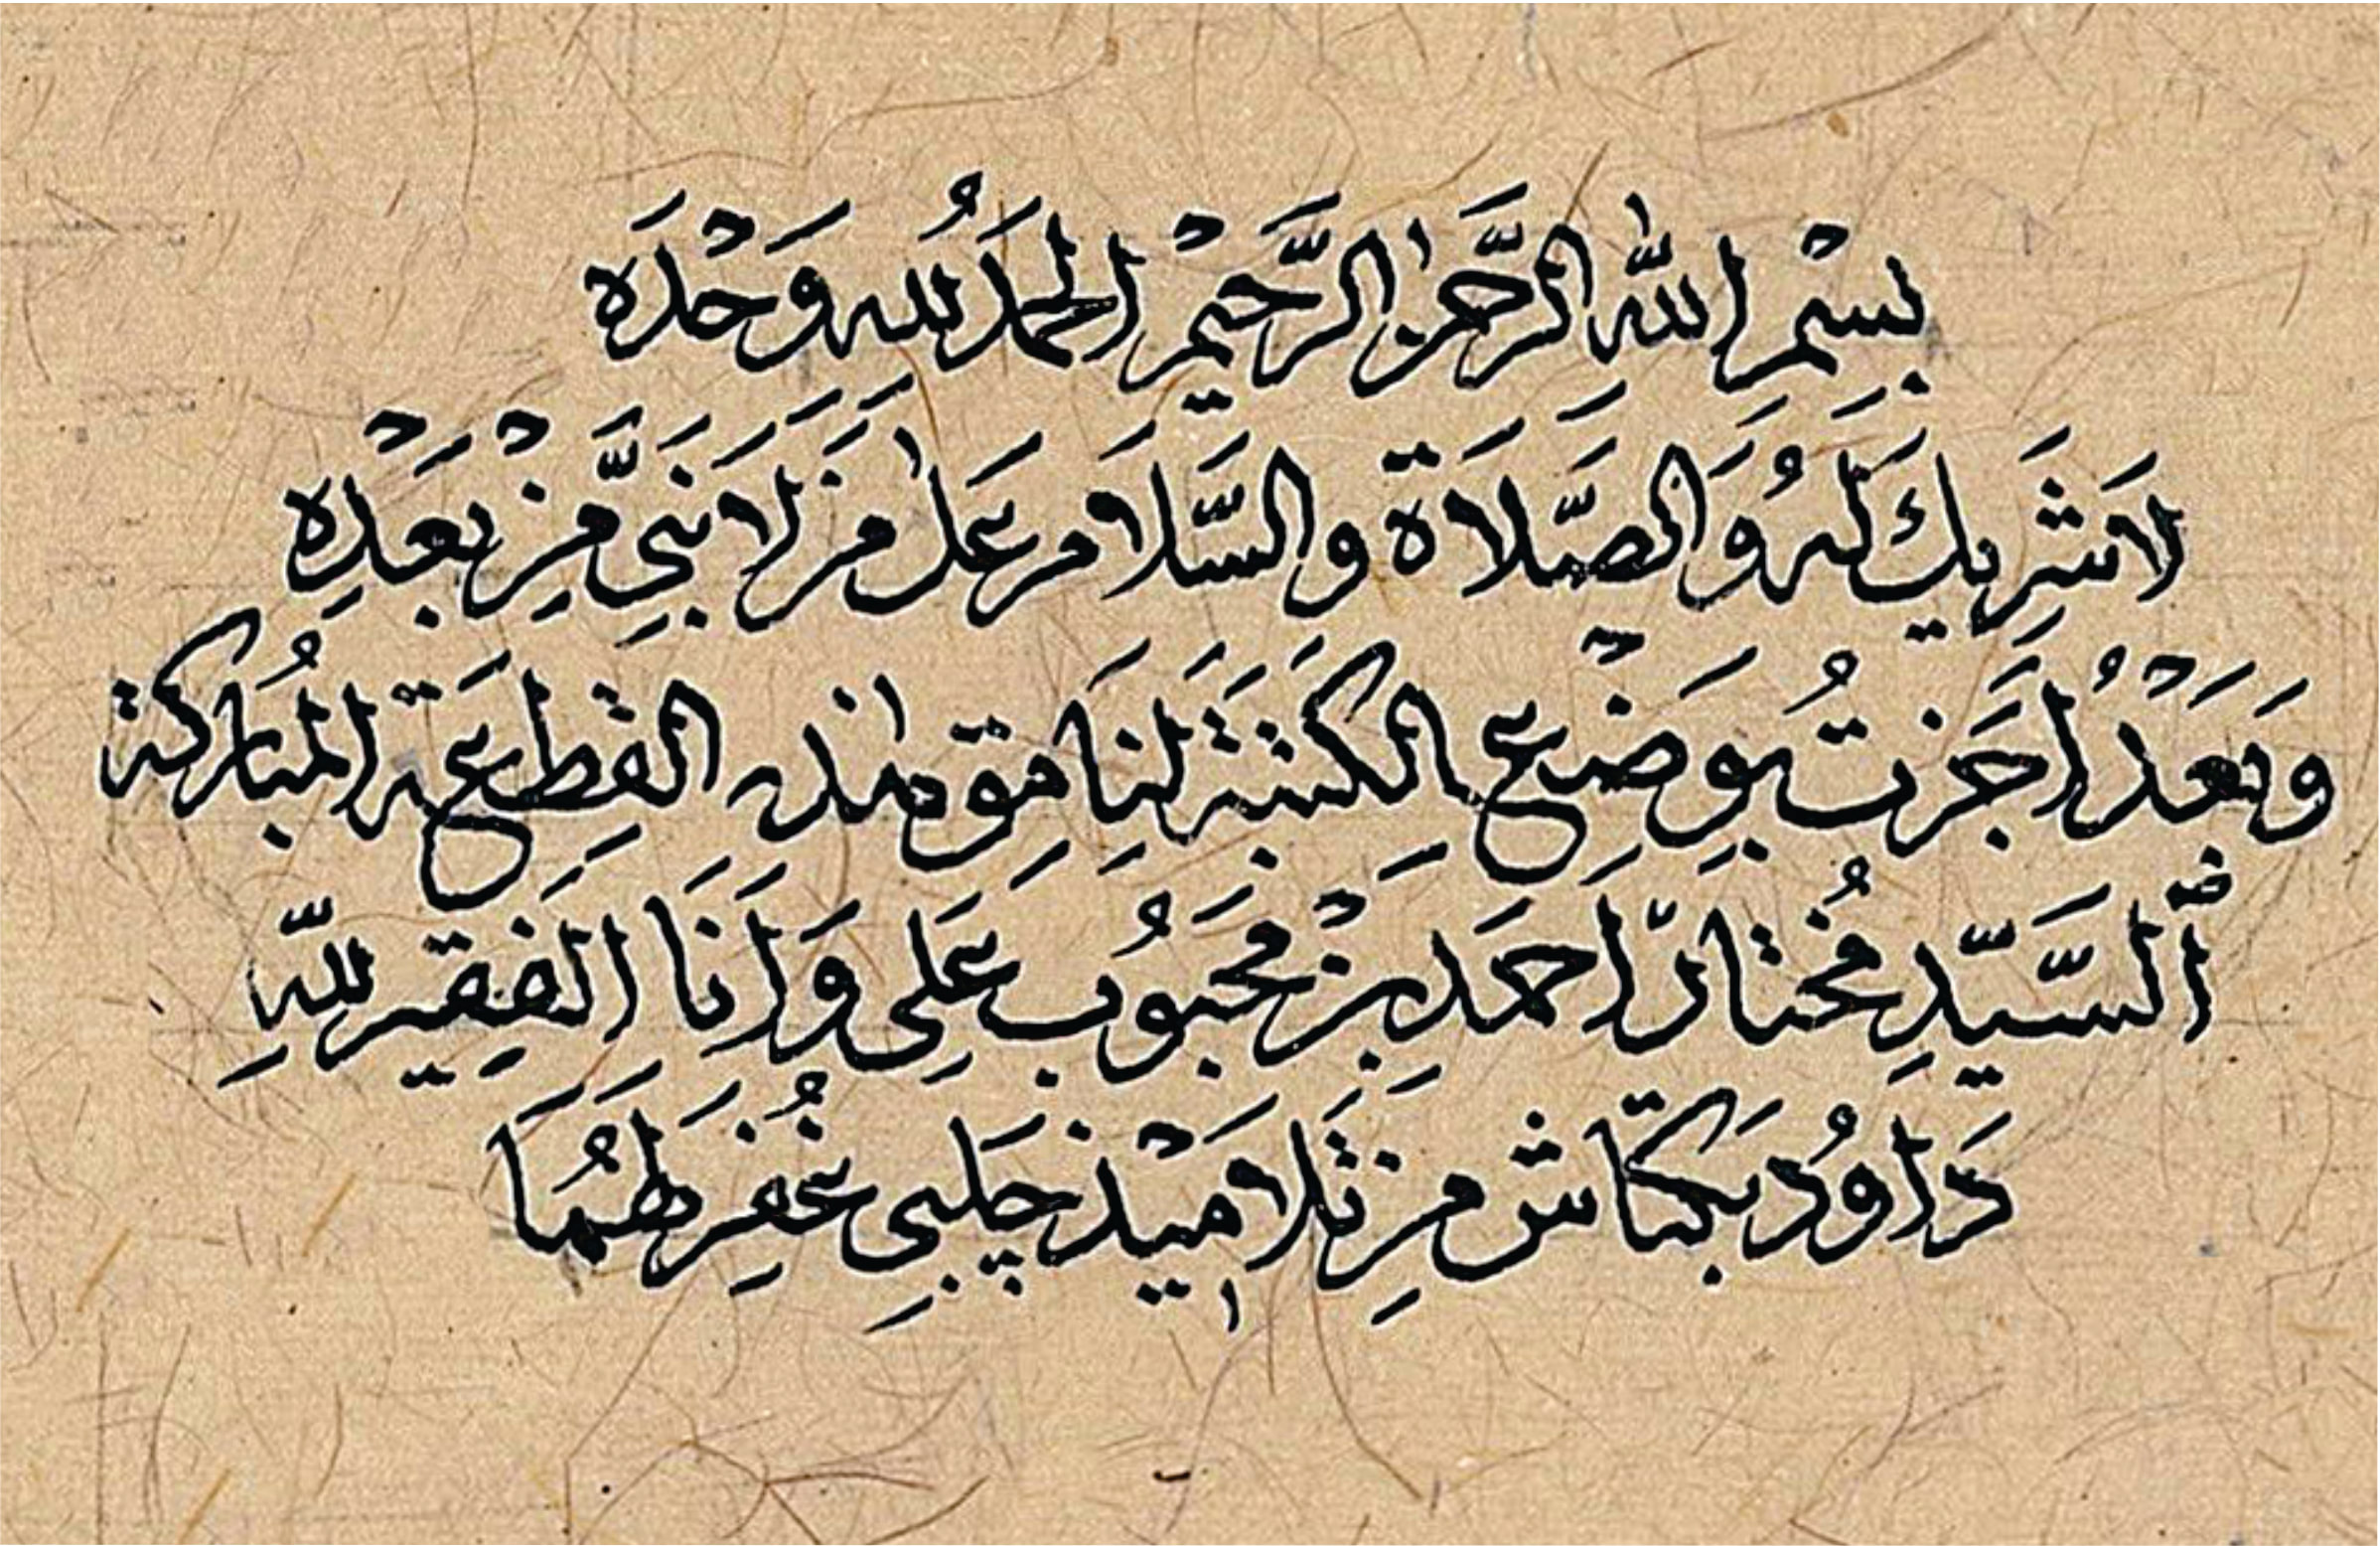 بِسْمِ اللّٰهِ الرَّحْمٰنِ الرَّحِيْمِ الْحَمْدُ لِلّٰهِ وَحْدَهُ
لَا شَرِيكَ لَهُ وَالصَّلَاةَ والسَّلَام عَلٰى مَنْ لَا نَبِيَّ مِنْ بَعْدِهِ
وَبَعْدُ أَجَزْتُ بِوَضْعِ الكَتَبَتَه لِنَا فوق هٰذه القِطَعَةِ المُبَاركة
أَلسَّيِّدِ مُختَار اَحمَد بِنْ مَحْبُوب عَلِى وَاَنَا الفَقِير لِلّٰهِ
دَاوُد بَكتَاش مِن تَلَامِيْذ چَلَبِى غُفِرَ لَهُمَا